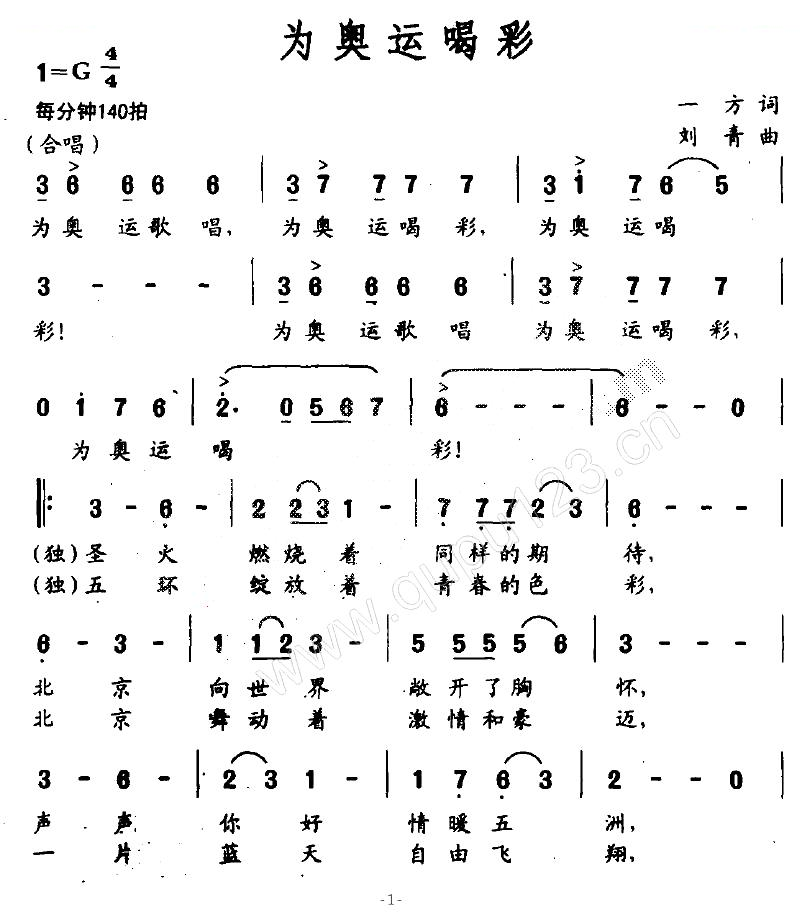 为奥运喝彩
1=G 4/4
每分钟140拍
一方词
(合唱)
刘青曲
3 6 6 6 6 | 3 7 7 7 7 | 3 1 7 6 6 5 |
为奥 运歌 唱, 为奥 运喝 彩, 为奥 运喝
3 - - - | 3 6 6 6 6 | 3 7 7 7 7 |
彩! 为奥 运歌 唱 为奥 运喝 彩,
0 1 7 6 | 2· 0 5 6 7 | 6 - - - | 6 - - 0 |
为奥运 喝 彩!
‖: 3 - 6 - | 2 2 3 1 - | 7 7 7 2 3 | 6 - - - |
(独)圣 火 燃 烧 着 同 样的期 待,
(独)五 环 绽 放 着 青 春的色 彩,
6 - 3 - | 1 1 2 3 - | 5 5 5 5 6 | 3 - - - |
北 京 向 世 界 敞 开 了 胸 怀,
北 京 舞 动 着 激 情 和 豪 迈,
3 - 6 - | 2 3 1 - | 1 7 6 3 | 2 - - 0 |
声 声 你 好 情 暖 五 洲,
一 片 蓝 天 自 由 飞 翔,
www.qupu123.cn
-1-